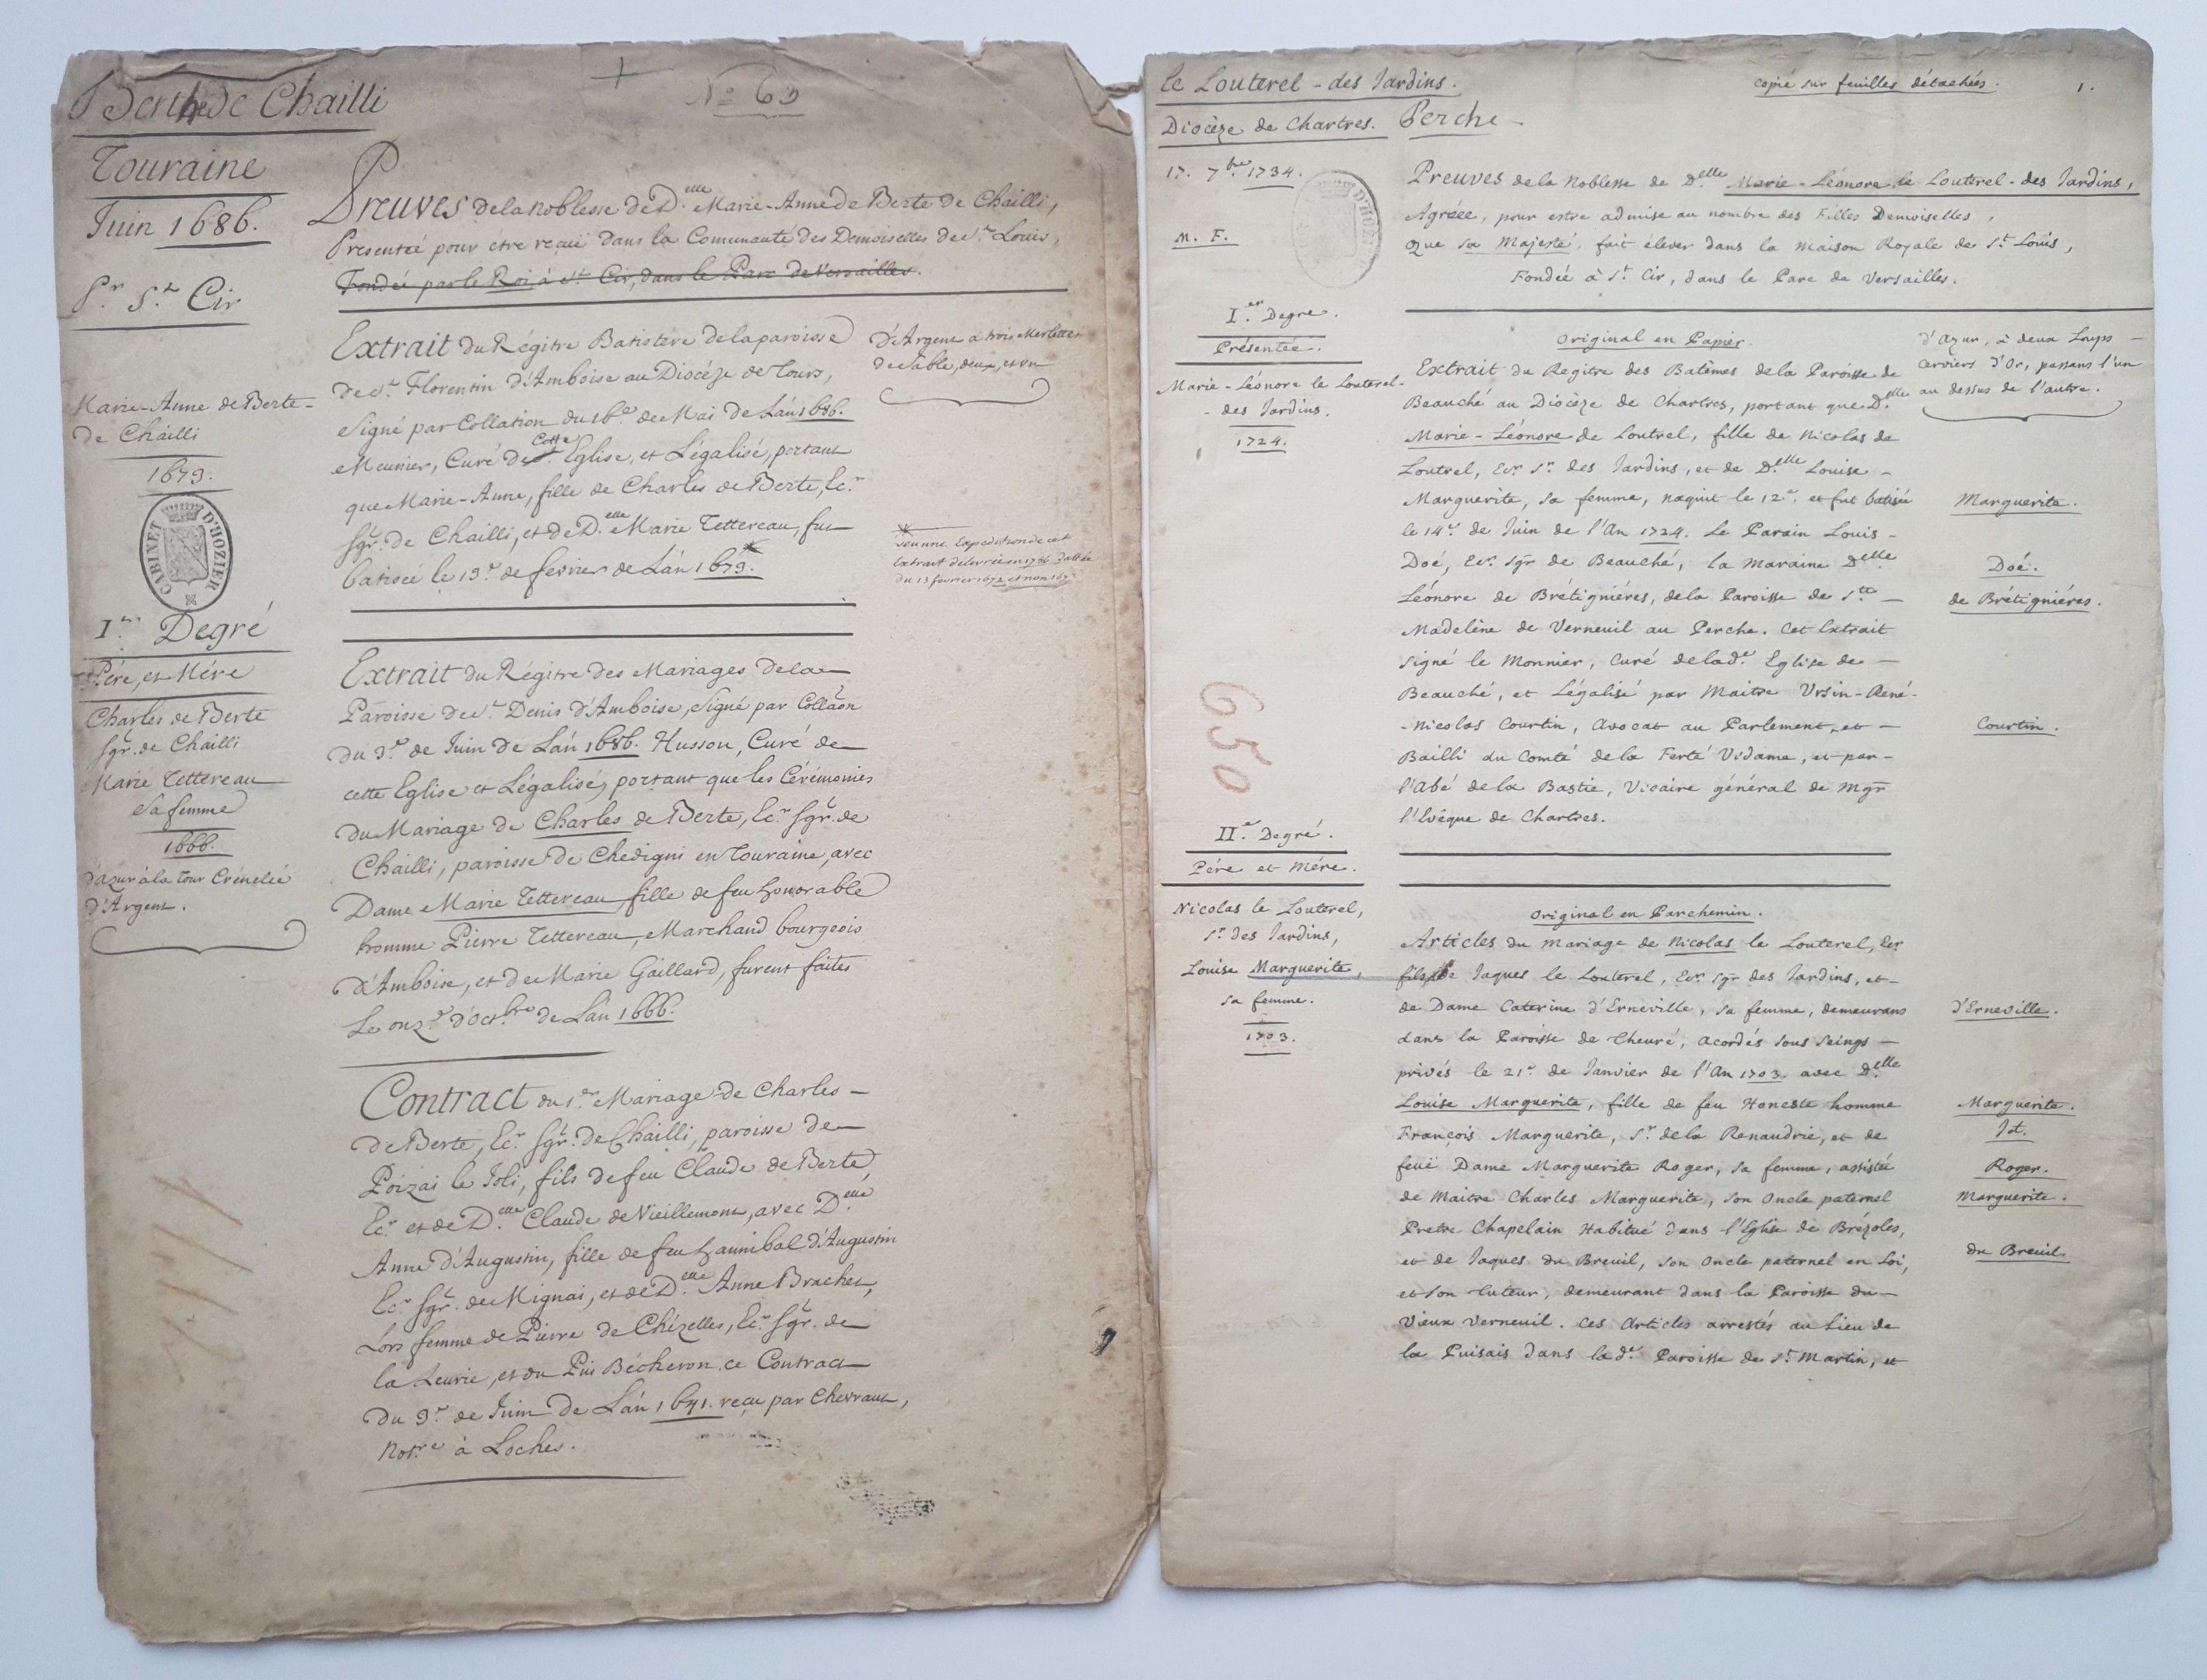 Berthe de Chailli
Touraine
Juin 1686.
Pr. St. Cir
Marie-Anne de Berte-
de Chailli
1673.
CABINET D'HOZIER
Ier. Degré
Pére, et Mére
Charles de Berte
Sgr. de Chailli
Marie Tettereau
Sa femme
1666.
d'Azur à la tour Crénelée
d'Argent.
No 65
Preuves de la noblesse de D.elle Marie-Anne de Berte de Chailli,
Presentée pour être reçuë dans la Communauté des Demoiselles de St. Louis,
Fondée par le Roi, à St. Cir, dans le Parc de Versailles.
Extrait du Régitre Batistere de la paroisse
de St. Florentin d'Amboise au Diocéze de Tours,
Signé par Collation du 16e. de Mai de Lan 1686.
Meunier, Curé de cette Eglise, et Légalisé, portant
que Marie-Anne, fille de Charles de Berte, Ec.r
Sgr. de Chailli, et de D.elle Marie Tettereau, fut
batiseé le 13e. de fevrier de Lan 1673.*
d'Argent a trois Merlettes
de Sable, deux, et un
*
Vu une Expedition de cet
Extrait delivrée en 1786 dattée
du 13 fevrier 1672 et non 1673
Extrait du Régitre des Mariages de la
Paroisse de St. Denis d'Amboise, signé par Collaon
du 3e. de Juin de Lan 1686. Husson, Curé de
cette Eglise et Légalisé, portant que les Cérémonies
du Mariage de Charles de Berte, Ec.r Sgr. de
Chailli, paroisse de Chedigni en Touraine, avec
Dame Marie Tettereau, fille de feu honorable
homme Pierre Tettereau, Marchand bourgeois
d'Amboise, et de Marie Gaillard, furent faites
Le onze. d'Oct.bre de Lan 1666.
Contract du 1er. Mariage de Charles-
de Berte, Ec.r Sgr. de Chailli, paroisse de
Poizai le Joli, fils de feu Claude de Berte,
Ec.r et de D.elle Claude de Vieillemont, avec D.elle
Anne d'Augustin, fille de feu hannibal d'Augustin
Ec.r Sgr. de Mignai, et de D.elle Anne Brachet,
Lors femme de Pierre de Chézelles, Ec.r Sgr. de
la Leurie, et du Pui Bécheron. ce Contract
du 9e. de Juin de Lan 1641. reçu par Chevraut,
Not.re à Loches.
le Louterel - des Jardins.
copié sur feuilles détachées.
1.
Diocèze de Chartres. Perche -
17. 7bre. 1734.
M. F.
Ier. Degré.
Présentée.
Marie-Léonore le Louterel-
- des Jardins.
1724.
650
IIe. Degré.
Pére et Mére.
Nicolas le Louterel,
Sr. des Jardins,
Louise Marguerite,
sa femme.
1703.
Preuves de la Noblesse de D.elle Marie-Léonore le Louterel-des Jardins,
Agréée, pour estre admise au nombre des Filles Demoiselles,
que sa Majesté fait élever dans la Maison Royale de St. Louis,
Fondée à St. Cir, dans le Parc de Versailles.
Original en Papier.
Extrait du Regitre des Batêmes de la Paroisse de
Beauché au Diocèze de Chartres, portant que D.elle
Marie-Léonore de Loutrel, fille de Nicolas de
Loutrel, Ecr. Sr. des Jardins, et de D.elle Louise -
Marguerite, sa femme, naquit le 12e. et fut batisée
le 14e. de Juin de l'An 1724. Le Parain Louis -
Doé, Ecr. Sgr de Beauché, la Maraine D.elle
Léonore de Brétigniéres, de la Paroisse de Ste -
Madeléne de Verneuil au Perche. Cet Extrait
signé le Monnier, Curé de lad.e Eglise de -
Beauché, et Légalisé par Maitre Ursin-René-
-Nicolas Courtin, Avocat au Parlement, et -
Bailli du Comté de la Ferté Vidame, et par-
l'Abé de la Bastie, Vicaire général de Mgr
l'Evéque de Chartres.
d'Azur, à deux Loups -
Cerviers d'Or, passans l'un
au dessus de l'autre.
Marguerite.
Doé.
de Brétigniéres.
Courtin.
Original en Parchemin.
Articles du Mariage de Nicolas le Louterel, Ecr
fils de Jaques le Louterel, Ecr. Sgr des Jardins, et -
de Dame Caterine d'Erneville, sa femme, demeurans
dans la Paroisse de Cheuré, acordés sous seings -
privés le 21e. de Janvier de l'An 1703. avec D.elle
Louise Marguerite, fille de feu Honeste homme
François Marguerite, Sr. de la Renaudrie, et de
feuë Dame Marguerite Roger, sa femme, assistée
de Maitre Charles Marguerite, son Oncle paternel
Pretre Chapelain Habitué dans l'Eglise de Brézoles,
et de Jaques du Breuil, son Oncle paternel en Loi,
et son tuteur, demeurant dans la Paroisse du -
Vieux Verneuil. Ces Articles arrestés au Lieu de
la Puisais dans lad.e Paroisse de St. Martin, et
d'Erneville.
Marguerite.
Id.
Roger.
Marguerite.
du Breuil.